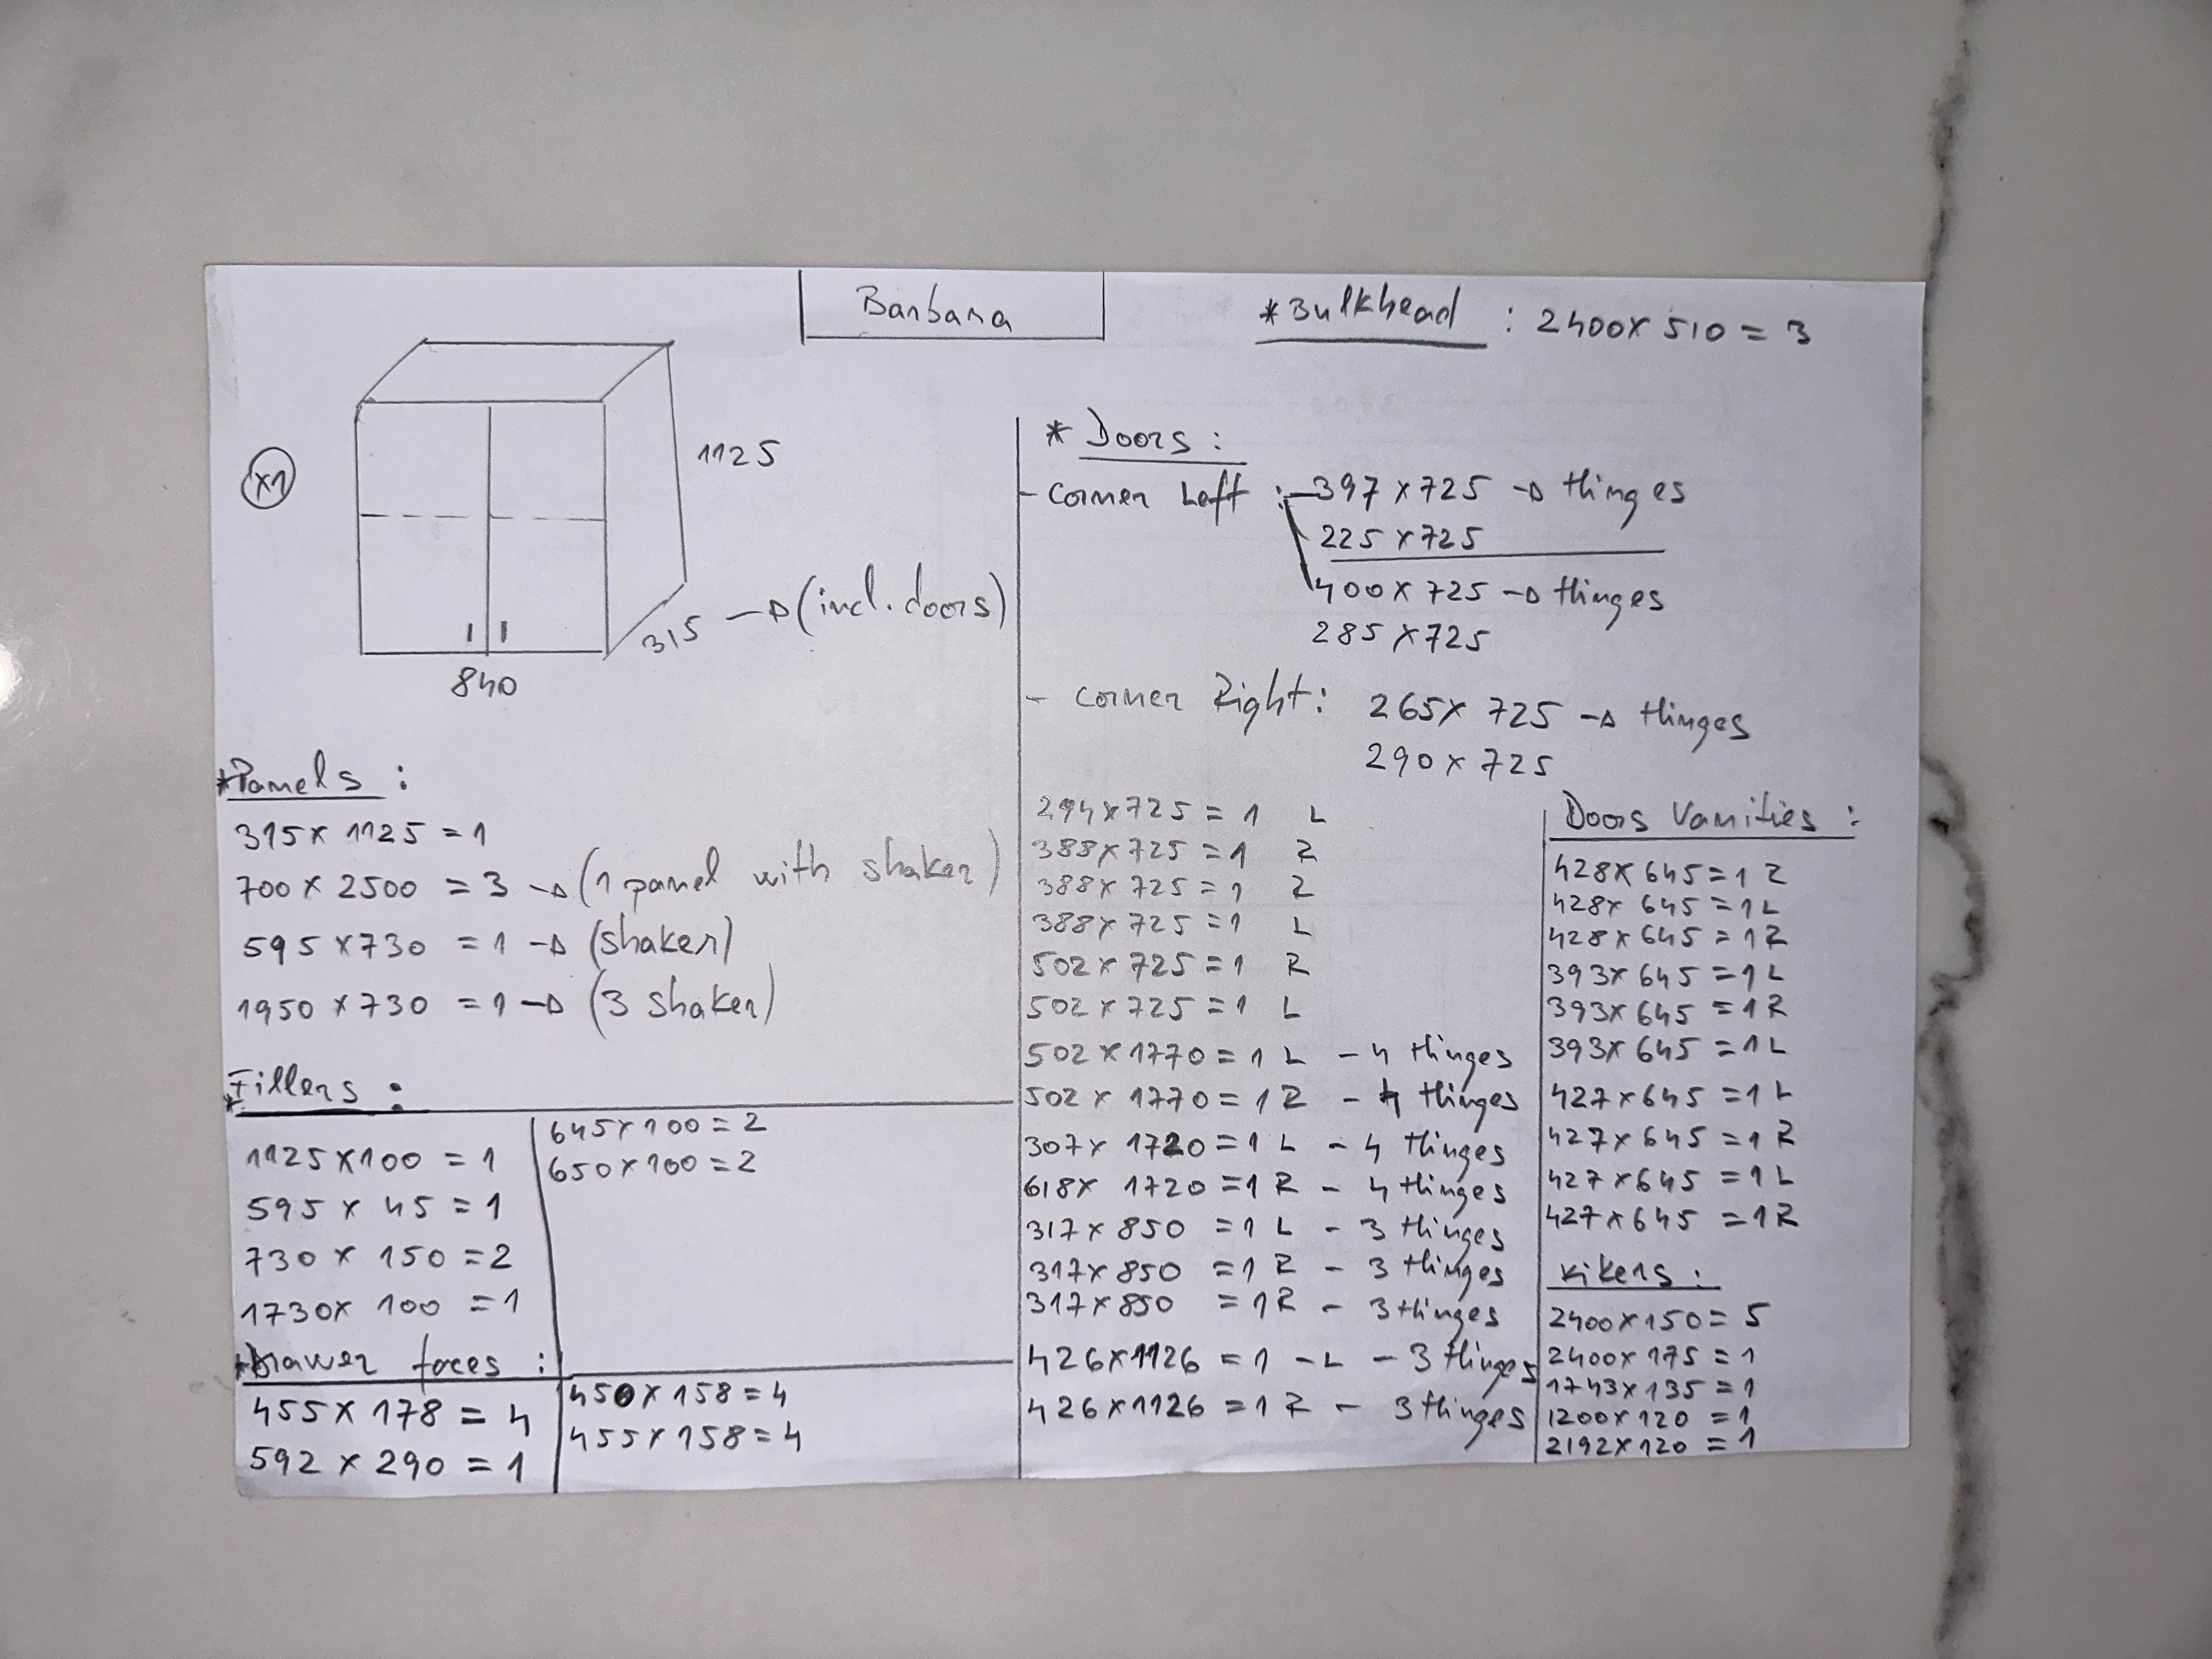 Barbara
*Bulkhead : 2400x510 = 3
x1
1125
315 -> (incl. doors)
840
*Panels :
315x 1125 = 1
700 x 2500 = 3 -> (1 panel with shaker)
595 x 730 = 1 -> (shaker)
1950 x 730 = 1 -> (3 shaker)
*Fillers :
1125x100 = 1
595 x 45 = 1
730 x 150 = 2
1730x 100 = 1
645x100 = 2
650x100 = 2
*Drawer faces :
455x 178 = 4
592 x 290 = 1
450x 158 = 4
455x 158 = 4
* Doors :
- Corner Left : 397 x 725 -> Hinges
225 x 725
400 x 725 -> Hinges
285 x 725
- Corner Right : 265x 725 -> Hinges
290 x 725
294x725 = 1 L
388x725 = 1 R
388x 725 = 1 R
388x 725 = 1 L
502x 725 = 1 R
502 x 725 = 1 L
502 x 1770 = 1 L - 4 Hinges
502 x 1770 = 1 R - 4 Hinges
307x 1720 = 1 L - 4 Hinges
618x 1720 = 1 R - 4 Hinges
317 x 850 = 1 L - 3 Hinges
317x 850 = 1 R - 3 Hinges
317x 850 = 1R - 3 Hinges
426x1126 = 1 - L - 3 Hinges
426x1126 = 1 R - 3 Hinges
Doors Vanities :
428x 645 = 1 R
428x 645 = 1 L
428x 645 = 1 R
393x 645 = 1 L
393x 645 = 1 R
393x 645 = 1 L
427x645 = 1 L
427x 645 = 1 R
427x645 = 1 L
427x645 = 1R
Kikers :
2400x150 = 5
2400x 175 = 1
1743x135 = 1
1200x120 = 1
2192x120 = 1